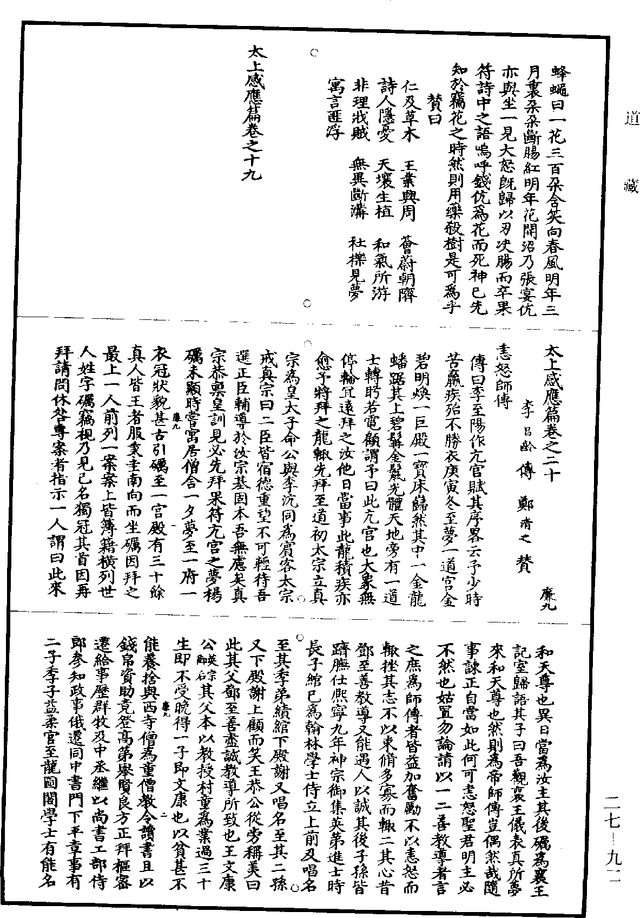 道藏
蜂蠅曰一花三百朶含笑向春風明年三
月裏朶朶斷腸紅明年花開沼乃張宴伉
亦與坐一見大怒旣歸以刃决腸而卒果
符詩中之語嗚呼錢伉爲花而死神已先
知於竊花之時然則用藥殺樹是可爲乎
賛曰
仁及草木 王業興周 薈蔚朝隮
詩人隱憂 天壤生植 和氣所游
非理戕賊 無異斷溝 社櫟見夢
寓言匪浮
太上感應篇卷之十九
太上感應篇卷之二十 廉九
李昌齡傳 鄭清之賛
恚怒師傳
傳曰李至陽作亢宮賦其序畧云予少時
苦羸疾殆不勝衣庚寅冬至夢一道宮金
碧明煥一巨殿一寶床巋然其中一金龍
蟠踞其上碧鬅金鬣光體天地旁有一道
士轉眄若電顧謂予曰此亢宮也大象無
停輪宜遠拜之汝他日當事此龍積疾亦
愈予將拜之龍輙先拜至道初太宗立真
宗爲皇太子命公與李沆同爲賓客太宗
戒真宗曰二臣皆宿德重望不可輕待吾
選正臣輔導於汝宗基固本吾無慮矣真
宗恭禀皇訓見必先拜果符亢宮之夢楊
礪未顯時嘗寓居僧舍一夕夢至一府一
衣冠狀貌甚古引礪至一宮殿有三十餘
廉九
真人皆王者服秉圭南向而坐礪因拜之
最上一人前列一案案上皆簿籍橫列世
人姓字礪竊視乃見己名獨冠其首因再
拜請問休咎專案者指示一人謂曰此來
和天尊也異日當為汝主其後礪爲襄王
記室歸語其子曰吾觀襄王儀表真所夢
來和天尊也然則為帝師傳豈偶然哉隨
事諫正自當如此何可恚怒聖君明主必
不然也姑置勿論請以一二善教導者言
之庶為師傳者皆益加奮勵不以恚怒而
輙挫其志不以束脩多寡而輙二其心昔
鄧至善教導又能遇人以誠其後子孫皆
躋膴仕熙寧九年神宗御集英第進士時
長子綰已爲翰林學士侍立上前及唱名
至其季弟績綰下殿謝又唱名至其二孫
又下殿謝上顧而笑王恭公從旁稱美曰
此其父鄧至善盡誠教導所致也王文康
公其父本以教授村童為業過三十
生即不受晚得一子即文康也以貧甚不
廉九
能養捨與西寺僧為童僧教令讀書且以
錢帛資助竟登高第舉賢良方正拜樞密
遷給事歷群牧及中丞繼以尚書工部侍
郎参知政事俄遷同中書門下平章事有
二子季子益柔官至龍圖閣學士有能名
二七-九二